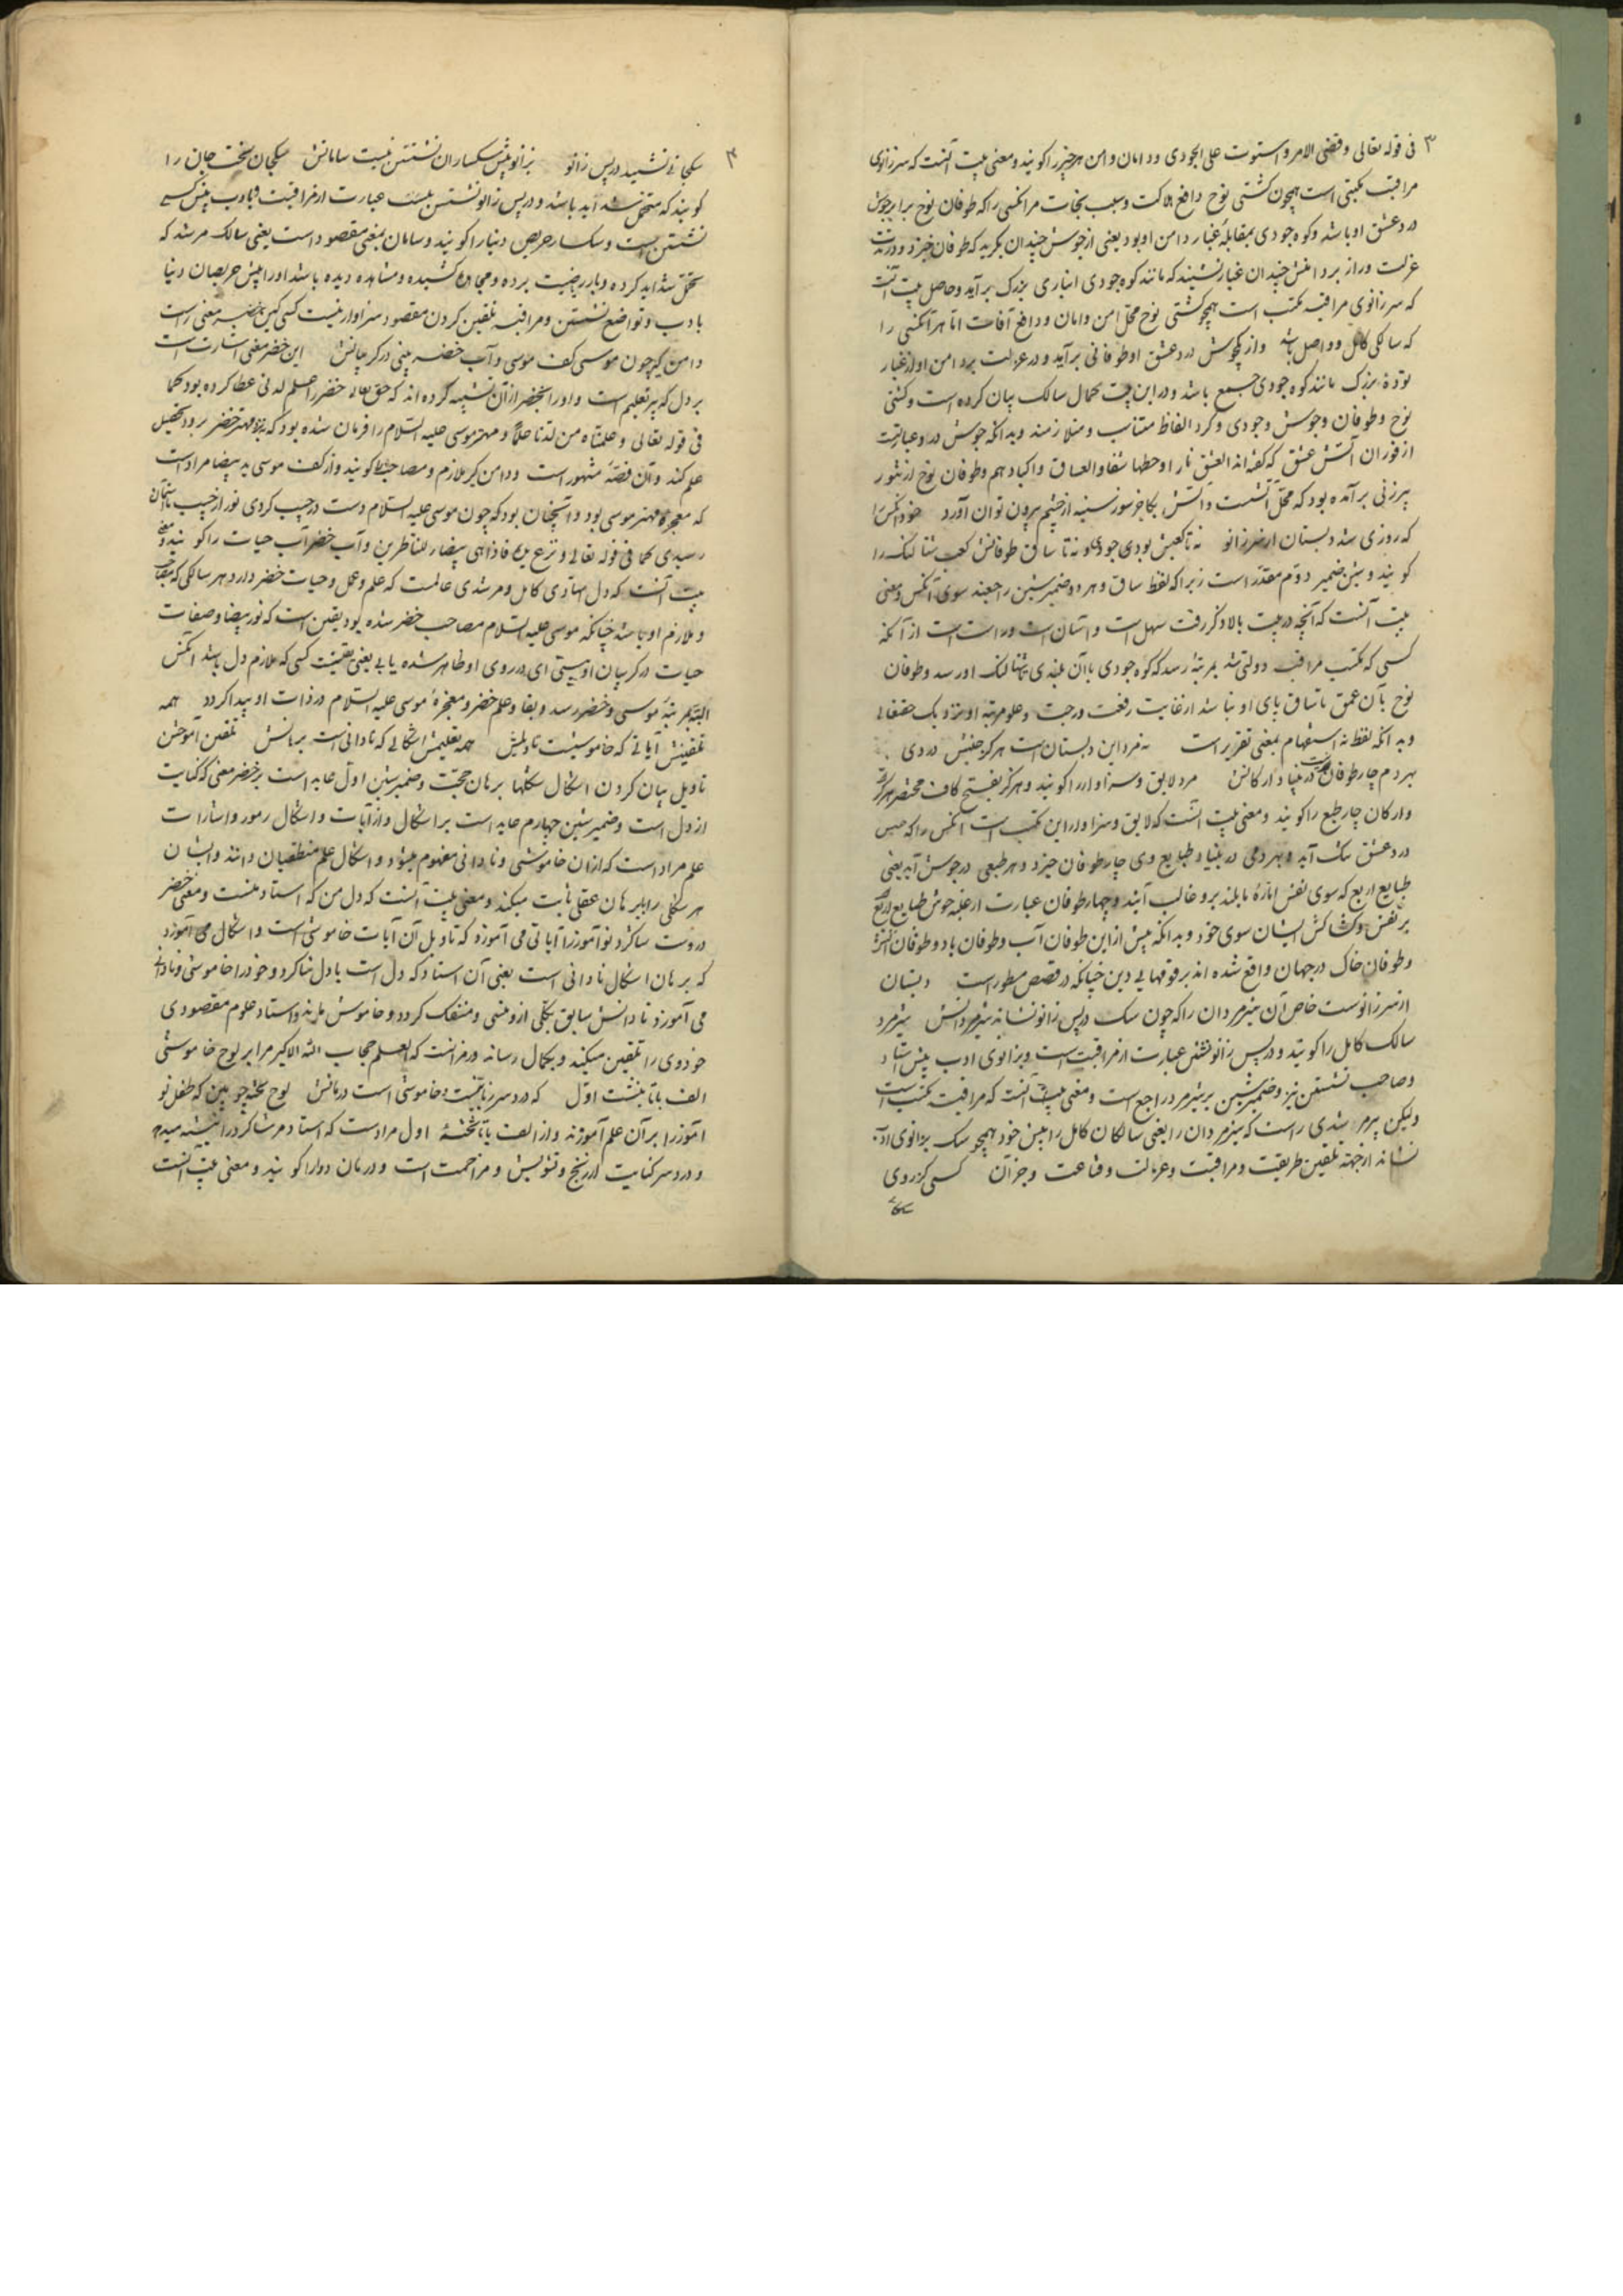 ۳ فی قوله تعالی وقضی الامر واستوت علی الجودی ودامان دامن هر چیز را گویند ومعنی بیت آنست که سر زانوی
مراقبه مکتبی است همچون کشتی نوح دافع هلاکت وسبب نجات مر آنکسی را که طوفان نوح برابر جوش
درد عشق او باشد وکوه جودی بمقابله غبار دامن او بود یعنی از جوش چندان بگرید که طوفان خیزد ودر
عزلت دراز بر دامنش چندان غبار نشیند که مانند کوه جودی انباری بزرگ برآید وحاصل بیت آنست
که سر زانوی مراقبه مکتب است همچو کشتی نوح محل امن وامان ودافع آفات اما هر آنکسی را
که سالکی کامل وواصل باشد واز یکجوش درد عشق او طوفانی برآید ودر عزلت بر دامن او از غبار
تودهٔ بزرگ مانند کوه جودی جمع باشد ودر این بیت کمال سالک بیان کرده است وکشتی
نوح وطوفان وجوش وجودی وگرد الفاظ متناسب ومتلازمند وبدانکه جوش درد عبارتست
از فوران آتش عشق که گفته اند العشق نار اوحطبها شفاه العشاق واکبادهم وطوفان نوح از تنور
پیرزنی برآمده بود که محل آتشست وآتش بکاخ سوز سینه از چشم بیرون توان آورد خود آنکس را
که روزی شد دبستان از سر زانو نه تا کعبش بود جودی ونه تا ساق طوفانش کعب شتالنگ را
گویند وشین ضمیر دوم مقدر است زیرا که لفظ ساق وهر دو ضمیر شین راجعند سوی آنکس ومعنی
بیت آنست که آنچه در بیت بالا ذکر رفت سهل است وآسان است وراست است از آنکه
کسی که مکتب مراقبه دولتی شد بمرتبهٔ رسد که کوه جودی با آن بلندی بشتالنگ او رسد وطوفان
نوح بآن عمق تا ساق پای او نباشد از غایت رفعت درجت وعلو مرتبه او نزدیک حقتعالی
وبدانکه لفظ نه استفهام بمعنی تقریر است نه مرد این دبستان است هر کز جنبش دردی
بهر دم چار طوفان نیست در بنیاد ارکانش مرد لایق وسزاوار را گویند وهرکز بفتح کاف مختصر هر که از
وارکان چار طبع را گویند ومعنی بیت آنست که لایق وسزاوار این مکتب است آنکس را که جنبش
درد عشق تنگ آید وبهر دمی در بنیاد طبایع وی چار طوفان خیزد وهر طبعی در جوش آید یعنی
طبایع اربع که سوی نفس اماره مایلند برو غالب آیند وچهار طوفان عبارت از غلبه جوش طبایع اربع
بر نفس وکشاکش ایشان سوی خود وبدانکه پیش از این طوفان آب وطوفان باد وطوفان آتش
وطوفان خاک در جهان واقع شده اند بر قومهای بی دین چنانکه در قصص مسطور است دبستان
از سر زانوست خاص آن شیر مردان را که چون سگ در پس زانو نشاند شیر مردانش شیر مرد
سالک کامل را گویند ودر پس زانو نشستن عبارت از مراقبتست وبزانوی ادب پیش استاد
وصاحب نشستن نیز وضمیر شین بر شیر مرد راجع است ومعنی بیت آنست که مراقبت مکتب است
ولیکن پیر مرشدی راست که شیر مردان را یعنی سالکان کامل را پیش خود همچو سگ بزانوی ادب
نشاند از جهت تلقین طریقت ومراقبت وعزلت وقناعت وجز آن کسی کز روی
سگا
۴ سگجانی نشیند در پس زانو بزانو پیش سگساران نشستن نیست سامانش سگجان سخت جان را
گویند که متحمل شداید باشد ودر پس زانو نشستن نیست عبارت از مراقبت وبادب پیش کسی
نشستن است وسگسار حریص دنیا را گویند وسامان بمعنی مقصود است یعنی سالک مرشد که
تحمل شداید کرده وبار ریاضیت برده ومجاهده کشیده ومشاهده دیده باشد او را پیش حریصان دنیا
بادب وتواضع نشستن ومراقبه تلقین کردن مقصود سزاوار نیست کسی کین خضر معنی راست
دامن گیر چون موسی کف موسی وآب خضر بینی در گریبانش این خضر معنی اشارت است
بر دل که پیر تعلیم است واو را بخضر از آن تشبیه کرده اند که حق تعالی خضر را علم لدنی عطا کرده بود کما
فی قوله تعالی وعلمناه من لدنا علما ومهتر موسی علیه السلام را فرمان شده بود که نزد مهتر خضر برود وتحصیل
علم کند وآن قصهٔ مشهور است ودامن گیر ملازم ومصاحب را گویند واز کف موسی ید بیضا مراد است
که معجزهٔ مهتر موسی بود وآنچنان بود که چون موسی علیه السلام دست در جیب کردی نور از جیب تا آسمان
رسیدی کما فی قوله تعالی ونزع یده فاذا هی بیضاء للناظرین وآب خضر آب حیات را گویند ومعنی
بیت آنست که دل مهادی کامل ومرشدی عالمست که علم وعمل وحیات خضر دارد هر سالکی که مصاحب
وملازم او باشد چنانکه موسی علیه السلام مصاحب خضر شده بود یقین است که نور بیضا وصفات
حیات در گریبان او بینی ای در روی او ظاهر شده یابی یعنی یقینست کسی که ملازم دل باشد آنکس
البته بمرتبهٔ موسی وخضر رسد وبقا وعلم خضر ومعجزهٔ موسی علیه السلام در ذات او پیدا گردد همه
تلقینش آیاتی که خاموشیست تاویلش همه تعلیمش اشکالی که نادانی است برهانش تلقین آموختن
تاویل بیان کردن اشکال شکلها برهان حجت وضمیر شین اول عاید است بر خضر معنی که کنایت
از دل است وضمیر شین چهارم عاید است بر اشکال واز آیات واشکال رموز واشارات
علم مراد است که از آن خاموشی ونادانی مفهوم میشود واشکال علم منطقیان دانند وایشان
هر شکلی را ببرهان عقلی ثابت میکنند ومعنی بیت آنست که دل من که استاد منست ومعنی خضر
دروست شاگرد نوآموز را آیاتی می آموزد که تاویل آن آیات خاموشی است واشکال می آموزد
که برهان اشکال نادانی است یعنی آن استاد که دل است با دل شاگرد وخود را خاموشی ونادانی
می آموزد تا دانش سابق بکلی ازو منسی ومنفک گردد وخاموش ماند واستاد علوم مقصودی
خودوی را تلقین میکند وبکمال رساند ورمز آنست که العلم حجاب الله الاکبر مرا بر لوح خاموشی
الف با تا نبشت اول که درد سر زبانیست وخاموشی است درمانش لوح تخته چوبین که طفل نو
آموز را بر آن علم آموزند واز الف با تا تختهٔ اول مرادست که استاد مر شاگرد را نبشته میدهد
ودرد سر کنایت از رنج وتشویش ومزاحمت است ودرمان دوا را گویند ومعنی بیت آنست